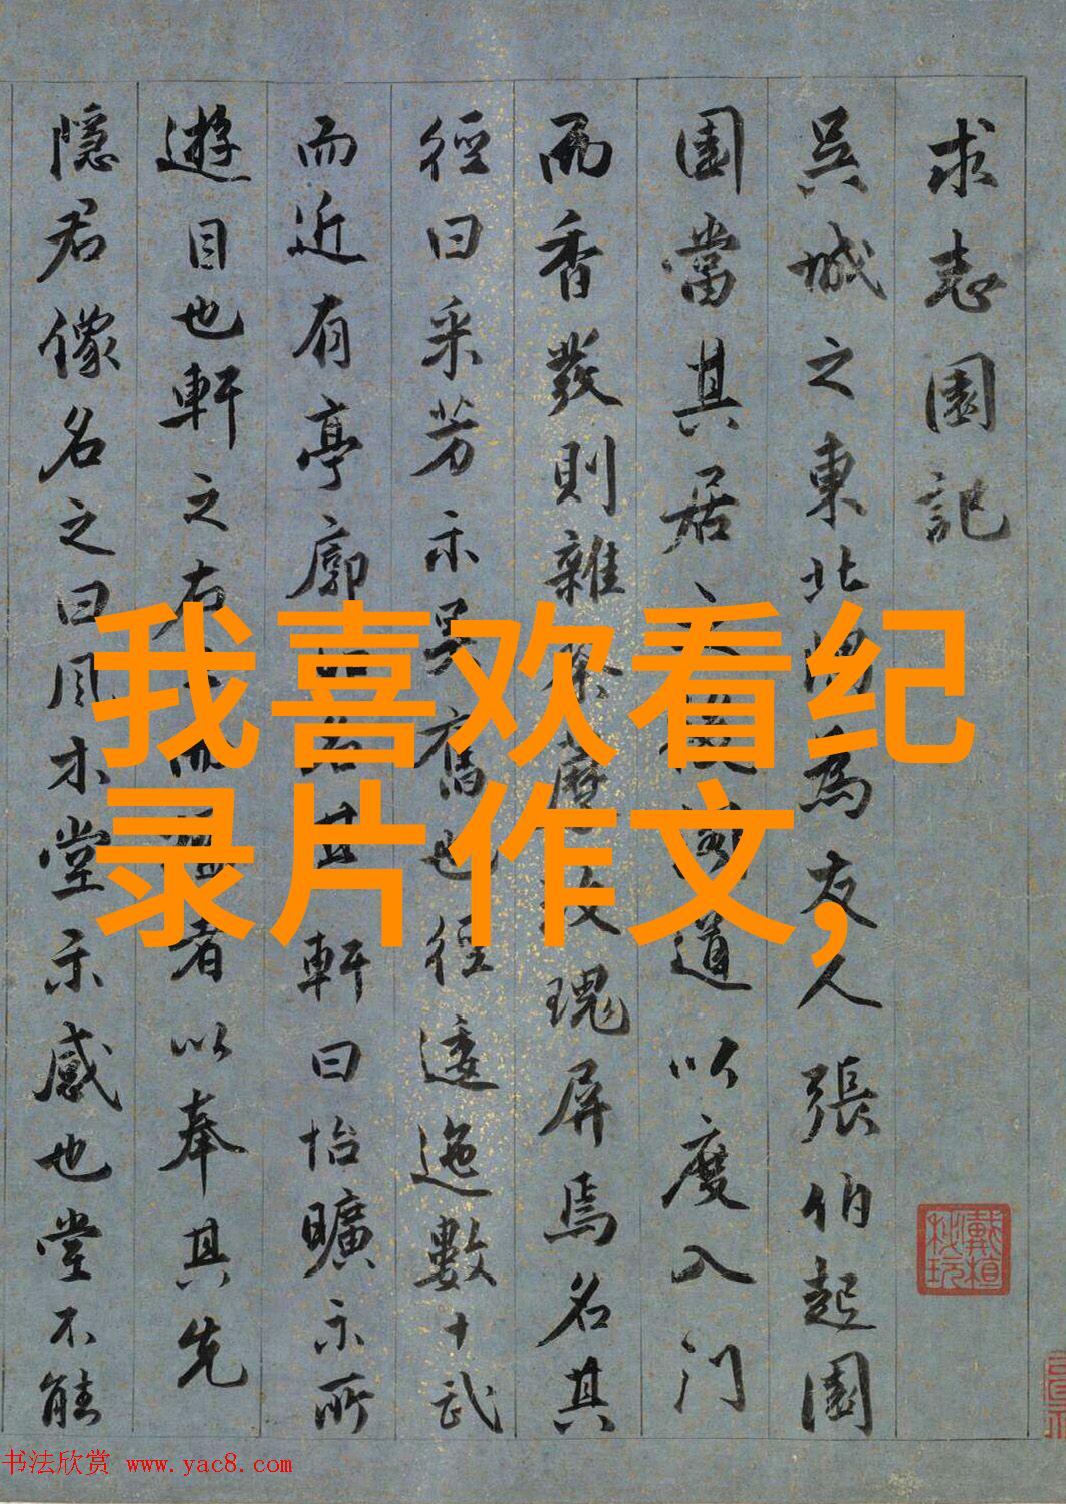 求志園記
吳城之東北為友人張伯起園
園當其居道以度入門
而香發則雜瑰屏焉名其
徑曰采芳示吳舊也徑逶迤數十武
而近有亭廓名其軒曰怡曠示所
遊目也軒之右者以奉其先
隱君像名之曰風木堂示感也堂不能
我喜欢看纪
录片作文,
书法欣赏 www.yac8.com